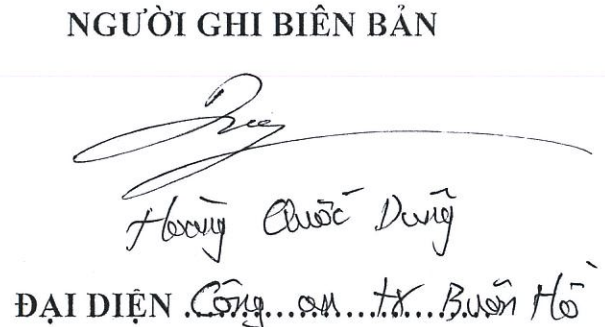 NGƯỜI GHI BIÊN BẢN
Hoàng Quốc Dũng
ĐẠI DIỆN .Công...an...tx...Buôn Hồ